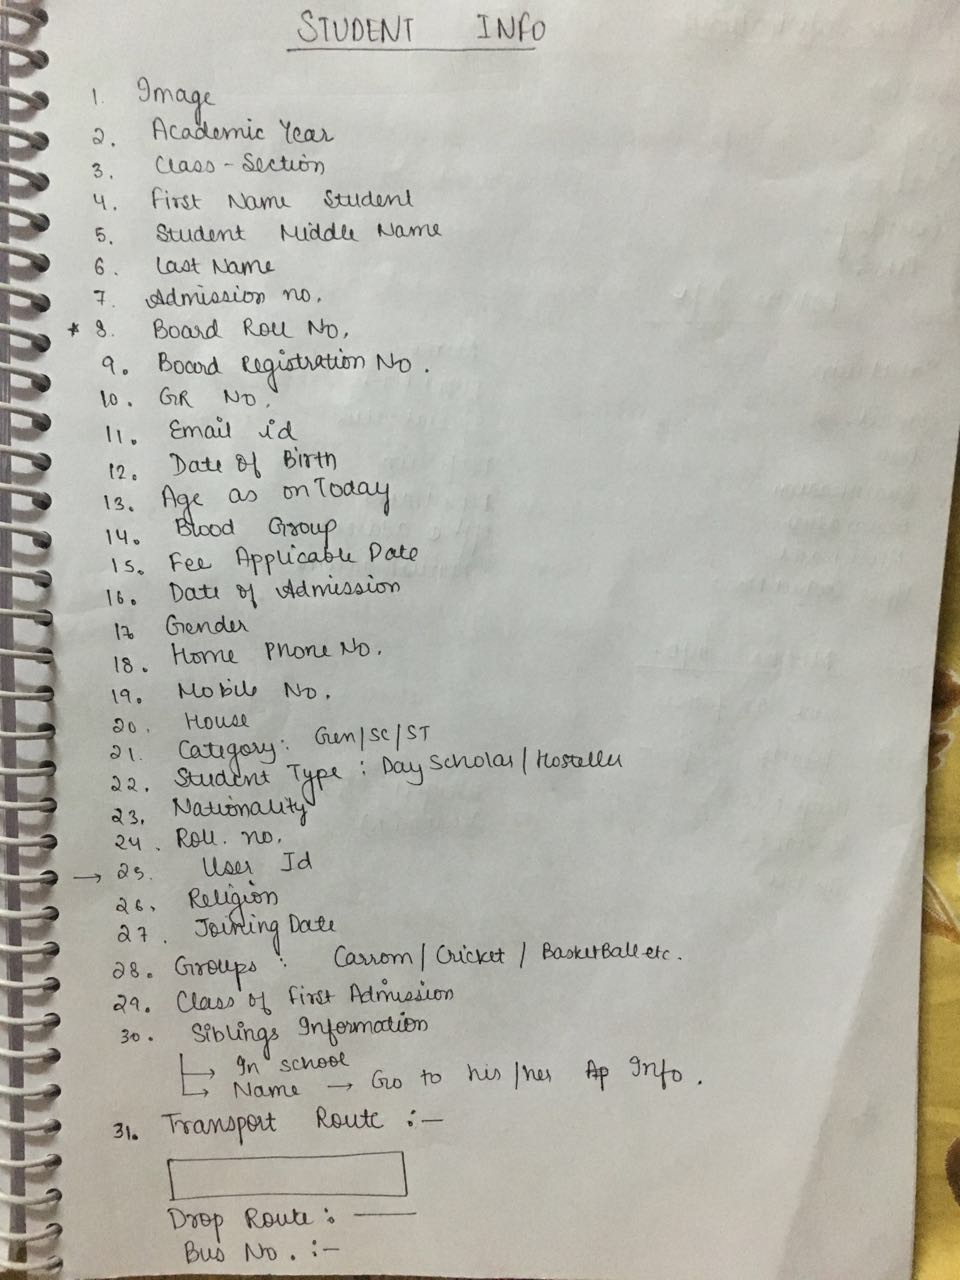 STUDENT INFO
1. Image
2. Academic Year
3. Class - Section
4. First Name Student
5. Student Middle Name
6. Last Name
7. Admission no.
* 8. Board Roll No.
9. Board Registration No.
10. GR No.
11. Email id
12. Date of Birth
13. Age as on Today
14. Blood Group
15. Fee Applicable Date
16. Date of Admission
17 Gender
18. Home Phone No.
19. Mobile No.
20. House
21. Category: Gen/SC/ST
22. Student Type : Day Scholar / Hosteller
23. Nationality
24. Roll. no.
→ 25. User Id
26. Religion
27. Joining Date
28. Groups : Carrom / Cricket / BasketBall etc.
29. Class of First Admission
30. Siblings Information
→ In school
→ Name → Go to his/her Info.
31. Transport Route :-
Drop Route :
Bus No. :-